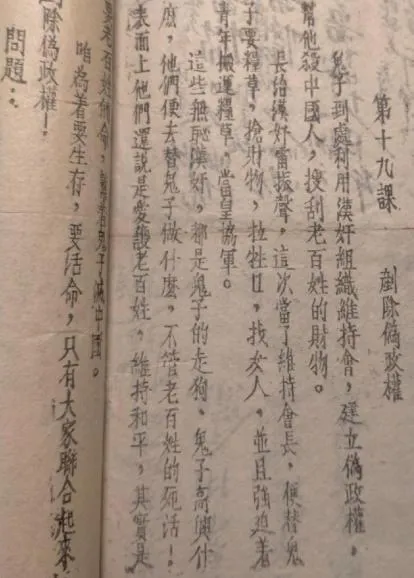 第十九課　剷除偽政權
鬼子到處利用漢奸組織維持會，建立偽政權，
幫他殺中國人，搜刮老百姓的財物。
長治漢奸雷振聲，這次當了維持會長，便替鬼
子要糧草，搶財物，拉牲口，找女人，並且強迫着
青年搬運糧草，當皇協軍。
這些無恥漢奸，都是鬼子的走狗、鬼子高興什
麽，他們便去替鬼子做什麽，不管老百姓的死活！
表面上他們還說是愛護老百姓，維持和平，其實是
要老百姓的命，幫着鬼子滅中國。
咱為着要生存，要活命，只有大家聯合起來，
剷除偽政權！
問題：